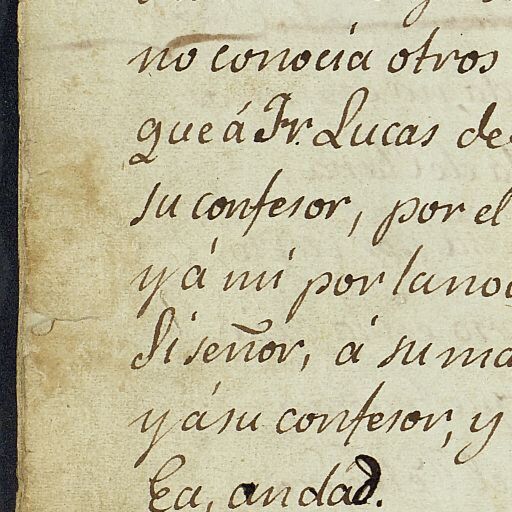 no conocia otros
que á Fr. Lucas de
su confesor, por el
y á mi por la no
Si señor, á su ma
y á su confesor, y
Ea, andad.